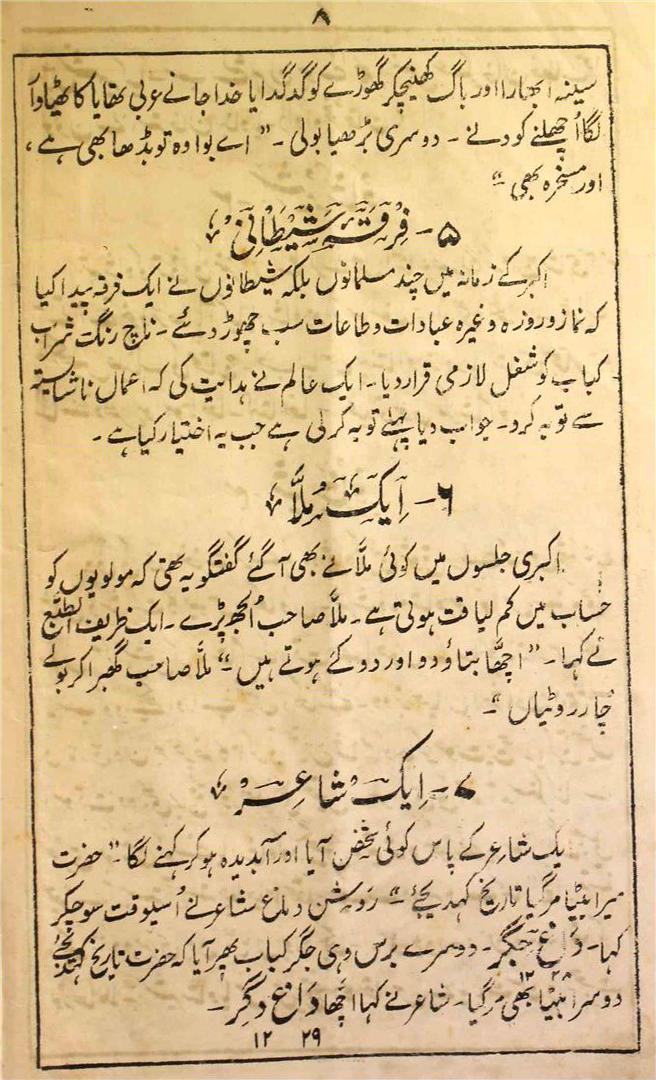 ۸
سینہ ابھارا اور باگ کھینچکر گھوڑے کو گدگدایا خدا جانے عربی تھا یا کاٹھیاوا
لگا اُچھلنے کودنے ۔ دوسری بڑھیا بولی ۔ " اے بوا وہ تو بڈھا بھی ہے ،
اور مسخرہ بھی "۔
۵ ۔ فِرقَۂ شَیطَانِی
اکبر کے زمانہ میں چند مسلمانوں بلکہ شیطانوں نے ایک فرقہ پیدا کیا
کہ نماز و روزہ وغیرہ عبادات و طاعات سب چھوڑ دئے ۔ ناچ رنگ شراب
کباب کو شغل لازمی قرار دیا ۔ ایک عالم نے ہدایت کی کہ اعمال ناشایستہ
سے توبہ کرو ۔ جواب دیا پہلے توبہ کر لی ہے جب یہ اختیار کیا ہے ۔
۶ ۔ اَیک مُلَّا
اکبری جلسوں میں کوئی ملّانے بھی آگئے گفتگو یہ تھی کہ مولویوں کو
حساب میں کم لیاقت ہوتی ہے ۔ ملّا صاحب اُلجھ پڑے ۔ ایک ظریف الطبّع
نے کہا ۔ " اچھّا بتاؤ دو اور دو کَے ہوتے ہیں "۔ ملّا صاحب گھبرا کر بولے
چار روٹیاں "۔
۷ ۔ اِیک شاعِر
یک شاعر کے پاس کوئی شخص آیا اور آبدیدہ ہوکر کہنے لگا ۔ " حضرت
میرا بیٹا مر گیا تاریخ کہدیجئے "۔ روشن دماغ شاعر نے اُسیوقت سوچکر
کہا ۔ دَاغِ جِگر ۔ دوسرے برس وہی جگر کباب پھر آیا کہ حضرت تاریخ کہدیجئے
۱۲ ۲۸
دوسرا بیٹا بھی مر گیا ۔ شاعر نے کہا اچھّا دَاغِ دگِر ۔
۱۲ ۲۹